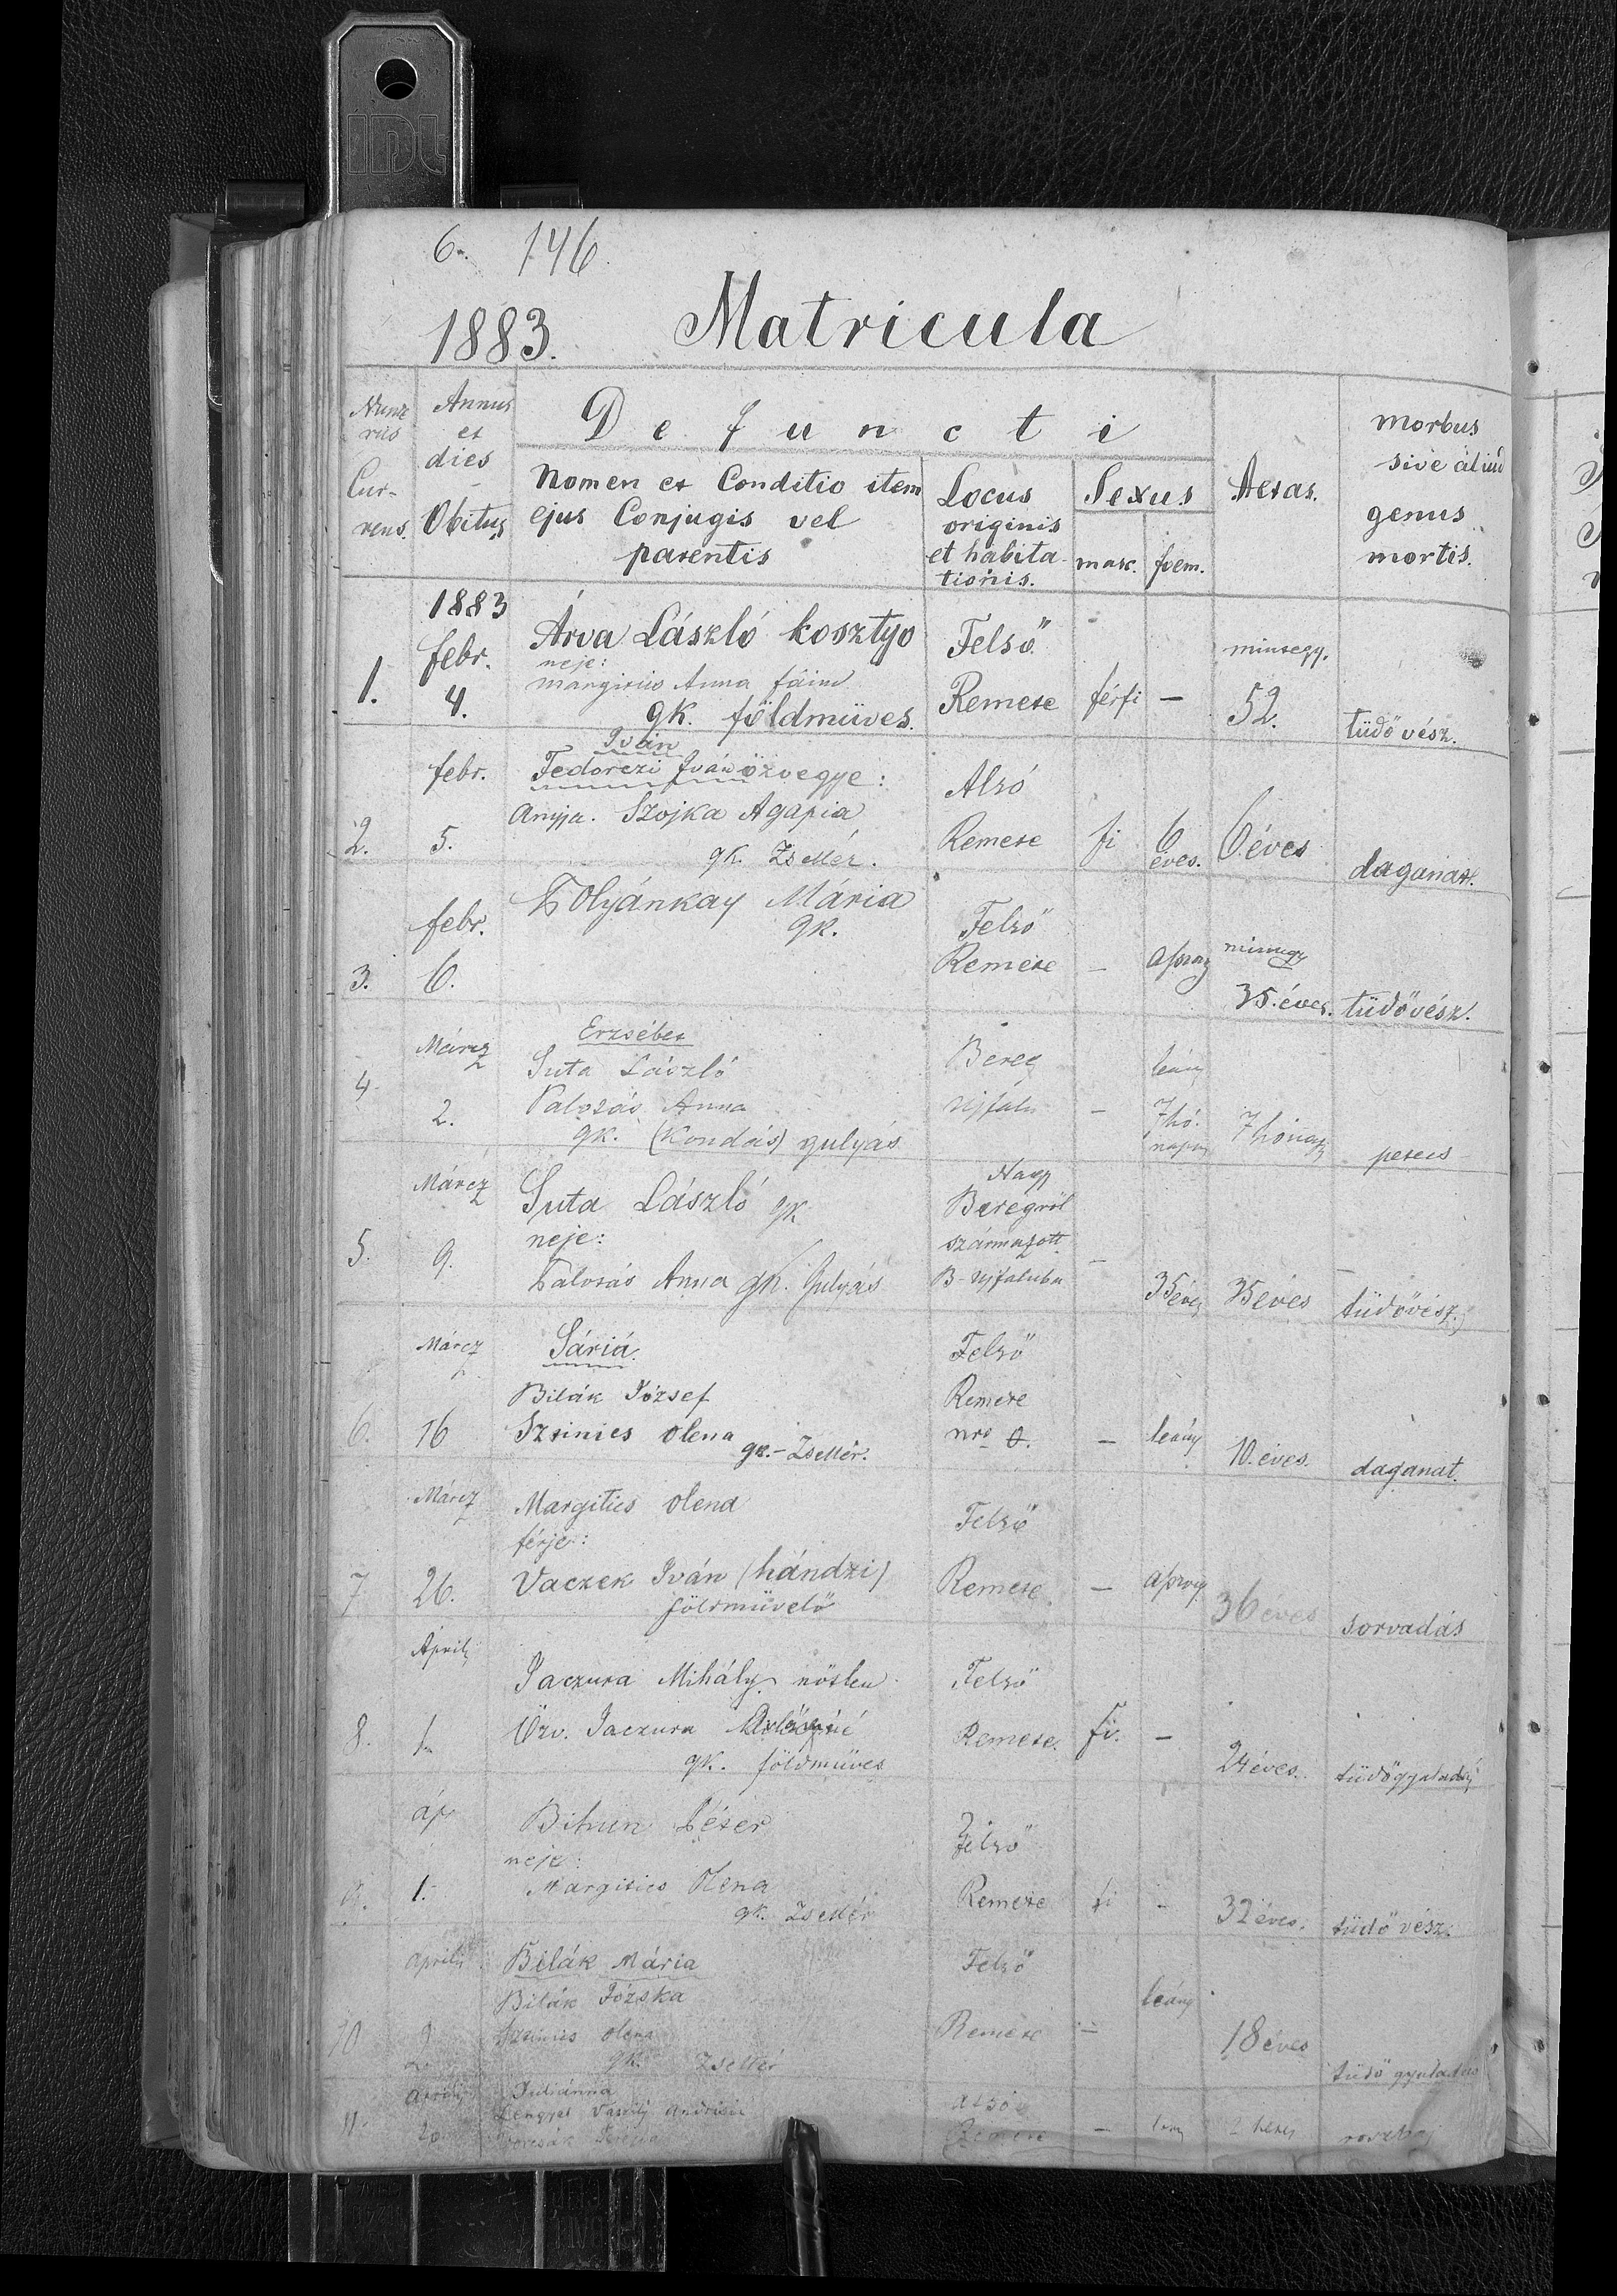 IDL
6. 146.
1883. Matricula
Annus et dies Obitus
Defuncti
Nomen et Conditio item ejus Conjugis vel parentis
Locus originis et habitationis.
Sexus
masc. foem.
Aetas.
morbus sive aliud genus mortis.
1883
1. febr. 4.
Árva László kosztyo
neje:
Anna
gk. földmüves.
Felső Remete
férfi —
52.
tüdő vész.
2. febr. 5.
Iván
Fedorczi Iván özvegye:
anyja. Szojka Agapia
gk. Zsellér.
Alsó Remete
fi
6 éves.
6 éves
daganat.
3. febr. 6.
Polyánkay Mária
gk.
Felső Remete
—
35. éves.
tüdővész.
4. Márcz 2.
Erzsébet
Suta László
Palozás Anna
gk. (Kondás) gulyás
Bereg ujfalu
—
leány
7 hó. napos
7 hónap
5. Márcz 9.
Suta László gk
neje:
Palozás Anna gk. Gulyás
Nagy Beregről származott
B-ujfaluba
—
35 éves
35 éves
tüdővész.
6. Márcz 16
Sáriá.
Bilák József
Szinics olena
gk. - Zsellér.
Felső Remete
nro 0.
— leány
10. éves.
daganat.
7 Márcz 26.
Margitics olena
férje:
Vaczek Iván (hándzi)
földmüvelő
Felső Remete.
—
36 éves
sorvadás
8. Április 1.
Jaczura Mihály nőtlen
Özv. Jaczura
gk. földmüves
Felső Remete.
fi. —
24 éves.
9. áp 1.
Bihun Péter
neje:
Margitics Olena
gk. Zsellér
Felső Remete
fi -
32 éves.
tüdő vész.
10 április
Bilák Mária
Bilák Józska
Szinics olena
gk. Zsellér
Felső Remete
—
leány
18 éves
tüdő gyuladás
11. április
Juliánna
Lengyel Vaszily
Alsó Remete
—
2 hetes